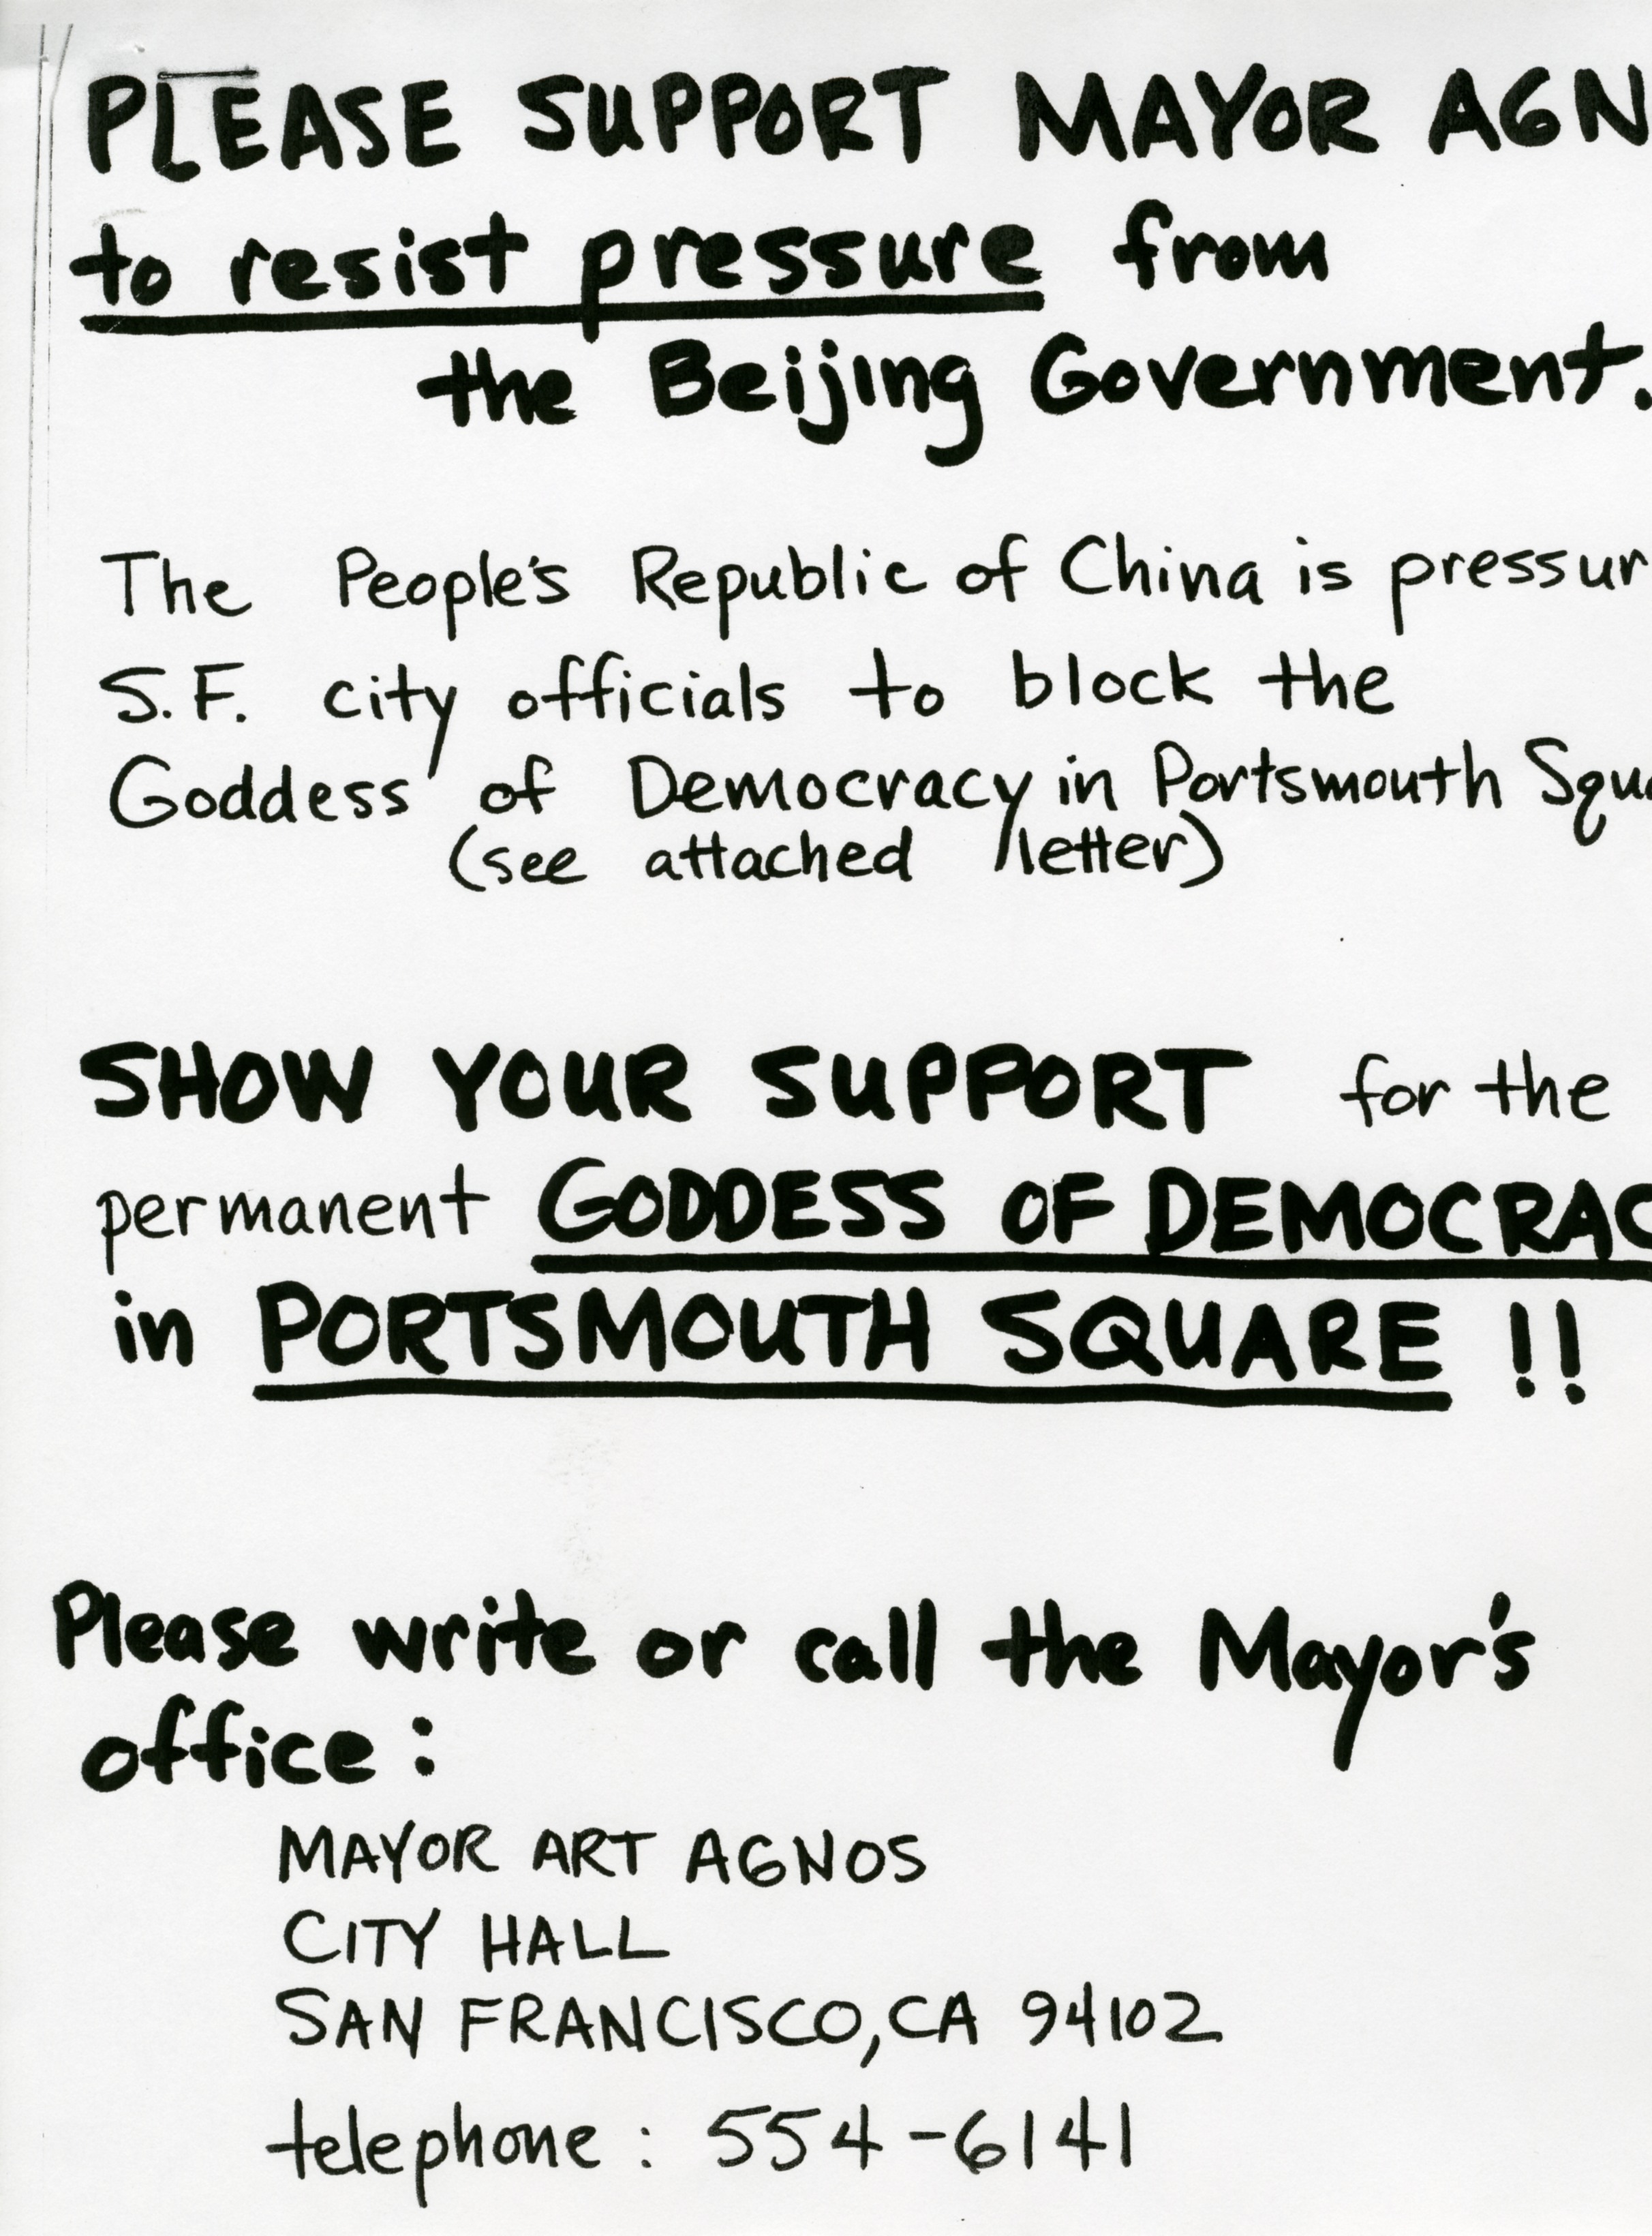 PLEASE SUPPORT MAYOR AGN
to resist pressure from
the Beijing Government.
The People's Republic of China is pressur
S.F. city officials to block the
Goddess of Democracy in Portsmouth Squa
(see attached letter)
SHOW YOUR SUPPORT for the
permanent GODDESS OF DEMOCRAC
in PORTSMOUTH SQUARE !!
Please write or call the Mayor's
office :
MAYOR ART AGNOS
CITY HALL
SAN FRANCISCO, CA 94102
telephone : 554-6141